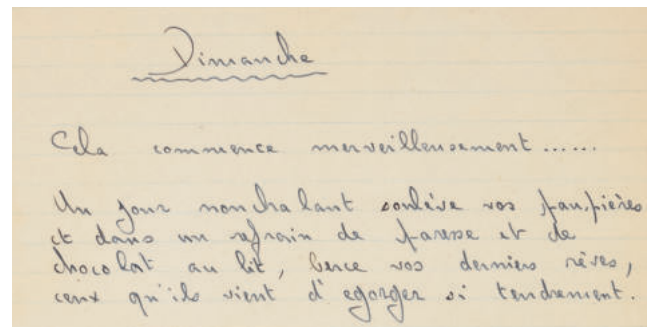 Dimanche
Cela commence merveilleusement......
Un jour nonchalant soulève vos paupières
et dans un refrain de paresse et de
chocolat au lit, berce vos derniers rêves,
ceux qu'ils vient d'egorger si tendrement.